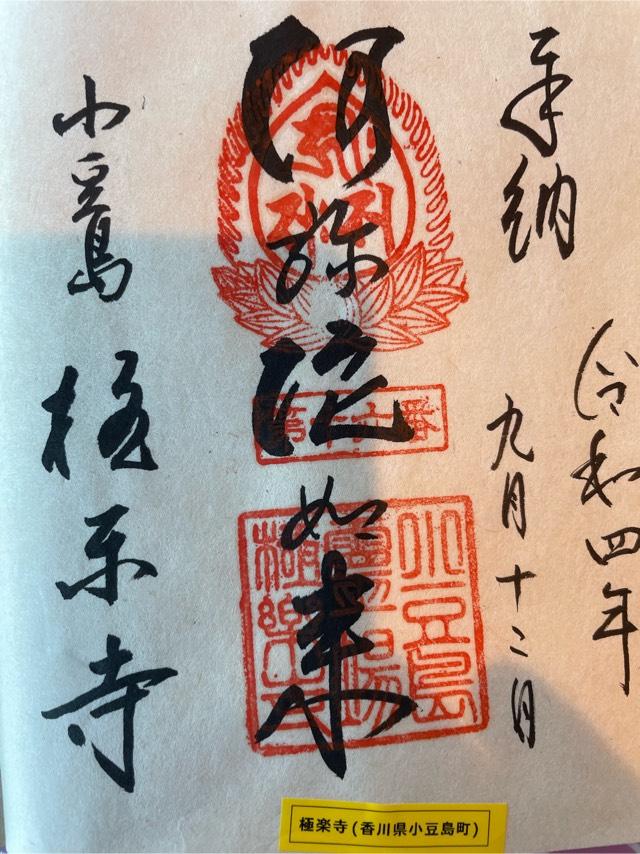 令和四年
奉納
九月十二日
阿弥陀如来
小豆島 極楽寺
第十六番
小豆島
霊場
極楽寺
極楽寺(香川県小豆島町)